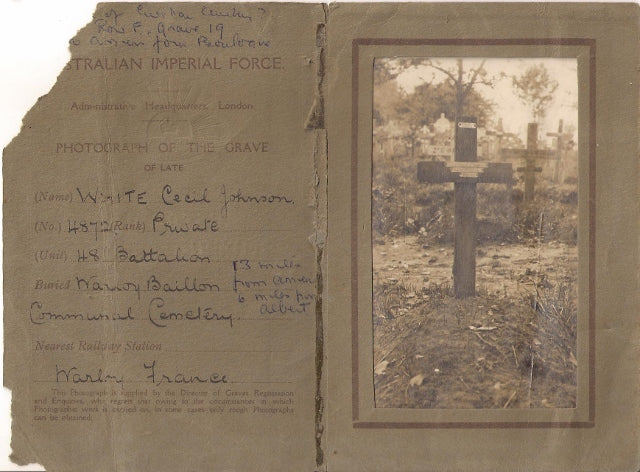 Row F, Grave 19
from Boulogne
TRALIAN IMPERIAL FORCE.
Administrative Headquarters, London.
PHOTOGRAPH OF THE GRAVE
OF LATE
(Name) WHITE Cecil Johnson.
(No.) 4872 (Rank) Private
(Unit) 48 Battalion
13 miles
from Amien
Buried Warloy Baillon
6 miles from
Albert
Communal Cemetery.
Nearest Railway Station
Warloy France.
This Photograph is supplied by the Director of Graves Registration
and Enquiries, who regrets that owing to the circumstances in which
Photographic work is carried on, in some cases only rough Photographs
can be obtained.